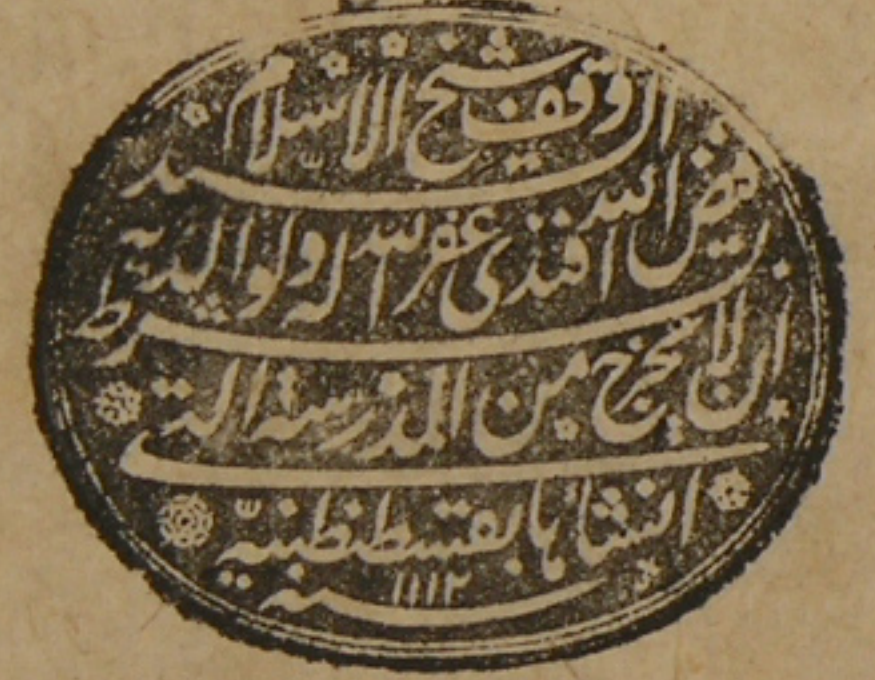 وقف شيخ الاسلام السيد
فيض الله افندى غفر الله له ولوالديه بشرط
ان لا يخرج من المدرسة التى
انشأها بقسطنطنيّة
سنه ١١١٢